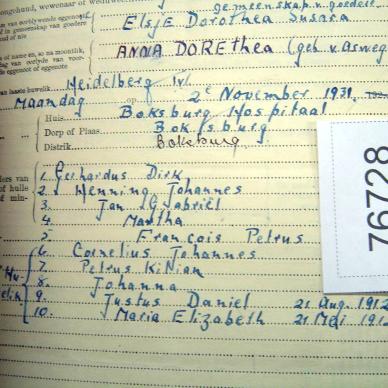 ongehuud, wewenaar of weduwe
gemeenskap v. goedere
Elsje Dorothea Susara
of in gemeenskap van goedere
of nie
ANNA DOREthea (geb v. Aswege
van vorige eggenoot of eggenote
laaste huwelik Heidelberg Tvl.
Maandag op 2e November 1931, 192
Huis Boksburg Hospitaal
Dorp of Plaas Boksburg
Distrik Boksburg
1. Gerhardus Dirk
2. Henning Johannes
3. Jan Gabriël
4. Martha
5. Francois Petrus
6. Cornelius Johannes
7. Petrus Kilian
8. Johanna
9. Justus Daniel 21 Aug. 1912
10. Maria Elizabeth 21 Mei 191
76728